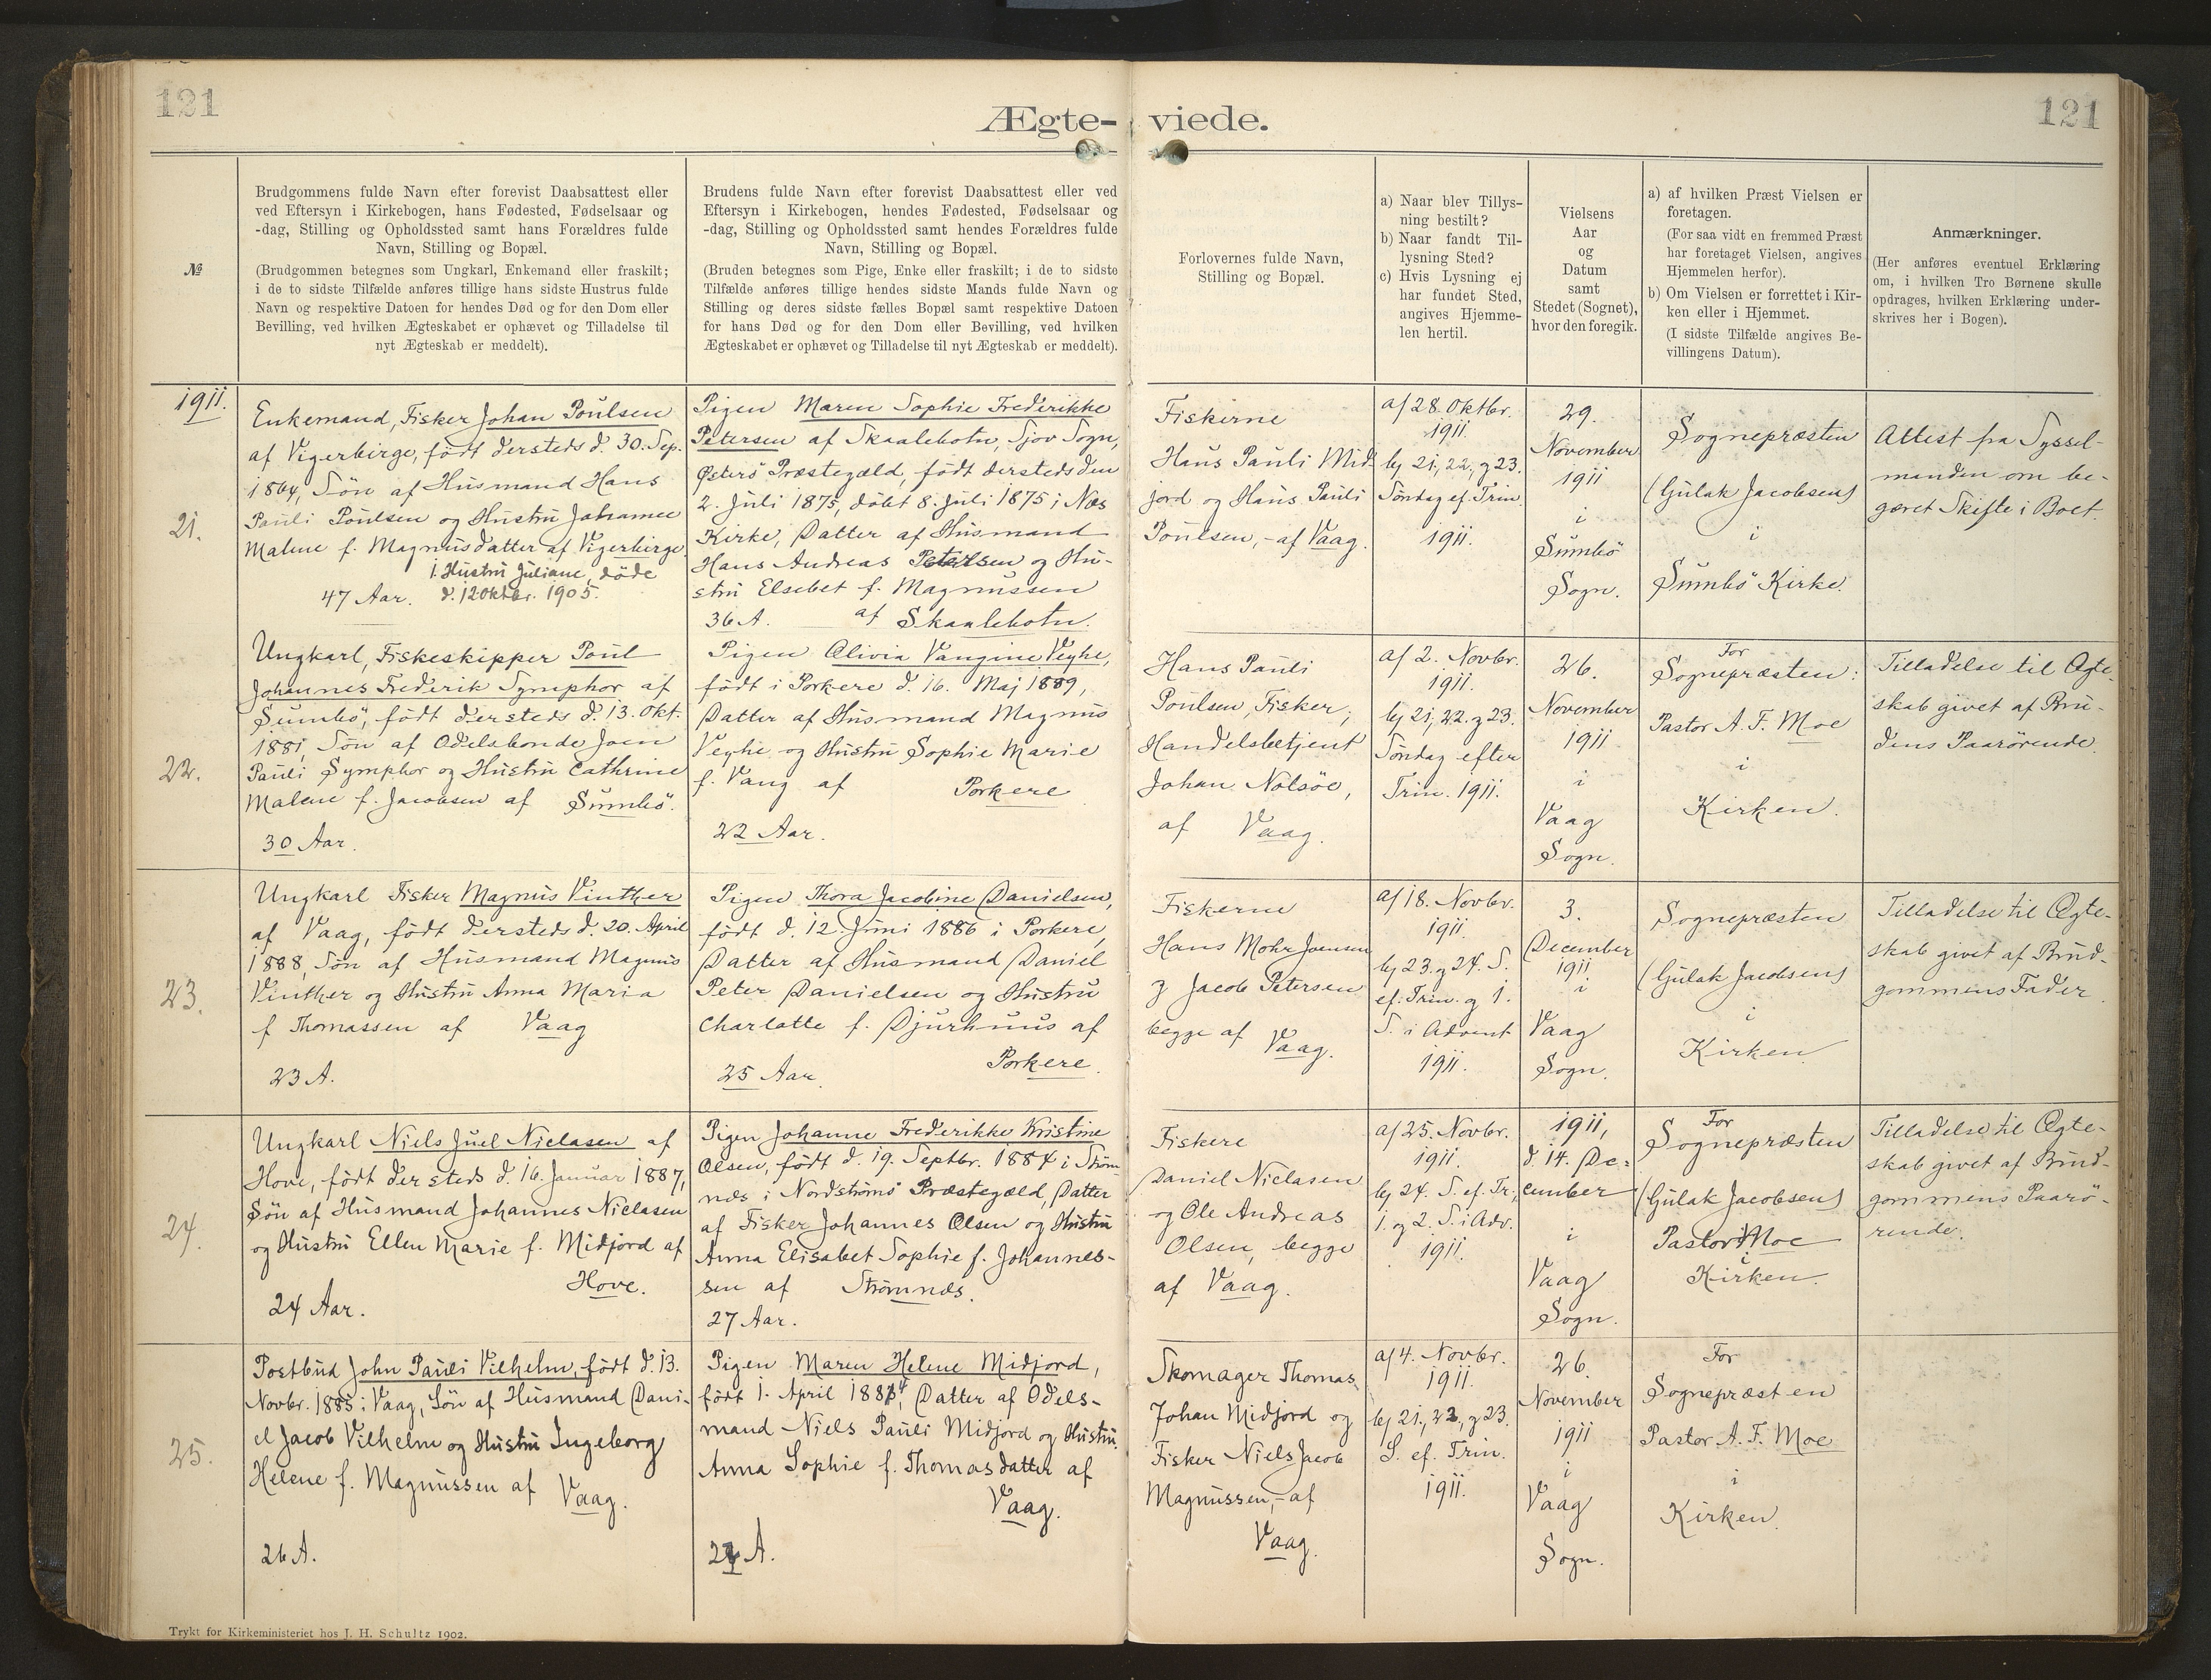 121
Ægte- viede.
121
№
Brudgommens fulde Navn efter forevist Daabsattest eller
ved Eftersyn i Kirkebogen, hans Fødested, Fødselsaar og
-dag, Stilling og Opholdssted samt hans Forældres fulde
Navn, Stilling og Bopæl.
(Brudgommen betegnes som Ungkarl, Enkemand eller fraskilt;
i de to sidste Tilfælde anføres tillige hans sidste Hustrus fulde
Navn og respektive Datoen for hendes Død og for den Dom eller
Bevilling, ved hvilken Ægteskabet er ophævet og Tilladelse til
nyt Ægteskab er meddelt).
Brudens fulde Navn efter forevist Daabsattest eller ved
Eftersyn i Kirkebogen, hendes Fødested, Fødselsaar og
-dag, Stilling og Opholdssted samt hendes Forældres fulde
Navn, Stilling og Bopæl.
(Bruden betegnes som Pige, Enke eller fraskilt; i de to sidste
Tilfælde anføres tillige hendes sidste Mands fulde Navn og
Stilling og deres sidste fælles Bopæl samt respektive Datoen
for hans Død og for den Dom eller Bevilling, ved hvilken
Ægteskabet er ophævet og Tilladelse til nyt Ægteskab er meddelt).
Forlovernes fulde Navn,
Stilling og Bopæl.
a) Naar blev Tillys-
ning bestilt?
b) Naar fandt Til-
lysning Sted?
c) Hvis Lysning ej
har fundet Sted,
angives Hjemme-
len hertil.
Vielsens
Aar
og
Datum
samt
Stedet (Sognet),
hvor den foregik.
a) af hvilken Præst Vielsen er
foretagen.
(For saa vidt en fremmed Præst
har foretaget Vielsen, angives
Hjemmelen herfor).
b) Om Vielsen er forrettet i Kir-
ken eller i Hjemmet.
(I sidste Tilfælde angives Be-
villingens Datum).
Anmærkninger.
(Her anføres eventuel Erklæring
om, i hvilken Tro Børnene skulle
opdrages, hvilken Erklæring under-
skrives her i Bogen).
1911.
21.
Enkemand, Fisker Johan Poulsen
af Vigerbirge, født dersteds d. 30. Sep.
1864, Søn af Husmand Hans
Pauli Poulsen og Hustru Johanne
Malene f. Magnusdatter af Vigerbirge.
1. Hustru Juliane, døde
47 Aar. d. 12 Oktbr. 1905.
Pigen Maren Sophie Frederikke
Petersen af Skaalebotn, Sjov Sogn,
Østerø Præstegæld, født dersteds den
2. Juli 1875, døbt 8. Juli 1875 i Næs
Kirke, Datter af Husmand
Hans Andreas Petersen og Hu-
stru Elsebet f. Magnussen
36 A. af Skaalebotn.
Fiskerne
Hans Pauli Mid-
jord og Hans Pauli
Poulsen, - af Vaag.
a/ 28. Oktbr.
1911.
b/ 21., 22., g 23.
Søndag ef. Trin.
1911.
29.
November
1911
i
Sumbø
Sogn.
Sognepræsten
(Gulak Jacobsen)
i
Sumbø Kirke.
Attest fra Syssel-
manden om be-
gæret Skifte i Boet.
22.
Ungkarl, Fiskeskipper Poul
Johannes Frederik Symphor af
Sumbø, født dersteds d. 13. Okt.
1881, Søn af Odelsbonde Joen
Pauli Symphor og Hustru Cathrine
Malene f. Jacobsen af Sumbø.
30 Aar.
Pigen Olivia Vangine Veyhe,
født i Porkere d. 16. Maj 1889,
Datter af Husmand Magnus
Veyhe og Hustru Sophie Marie
f. Vang af Porkere
22 Aar.
Hans Pauli
Poulsen, Fisker;
Handelsbetjent
Johan Nolsøe,
af Vaag.
a/ 2. Novbr.
1911.
b/ 21., 22. g 23.
Søndag efter
Trin. 1911.
26.
November
1911
i
Vaag
Sogn.
For
Sognepræsten:
Pastor A. F. Moe
i
Kirken.
Tilladelse til Ægte-
skab givet af Bru-
dens Paarørende.
23.
Ungkarl Fisker Magnus Vinther
af Vaag, født dersteds d. 20. April
1888, Søn af Husmand Magnus
Vinther og Hustru Anna Maria
f Thomassen af Vaag
23 A.
Pigen Thora Jacobine Danielsen,
født d. 12. Juni 1886 i Porkere,
Datter af Husmand Daniel
Peter Danielsen og Hustru
Charlotte f. Djurhuus af
25 Aar. Porkere.
Fiskerne
Hans Mohr Joensen
g Jacob Petersen
begge af Vaag.
a/ 18. Novbr.
1911.
b/ 23. g 24. S.
ef. Trin. g 1.
S. i Advent
1911.
3.
December
1911
i
Vaag
Sogn.
Sognepræsten
(Gulak Jacobsen)
i
Kirken
Tilladelse til Ægte-
skab givet af Brud-
gommens Fader.
24.
Ungkarl Niels Juel Niclasen af
Hove, født dersteds d. 16. Januar 1887,
Søn af Husmand Johannes Niclasen
og Hustru Ellen Marie f. Midjord af
Hove.
24 Aar.
Pigen Johanne Frederikke Kristine
Olsen, født d. 19. Septbr. 1884 i Strøm-
næs i Nordstrømø Præstegæld, Datter
af Fisker Johannes Olsen og Hustru
Anna Elisabet Sophie f. Johannes-
sen af Strømnæs.
27 Aar.
Fiskere
Daniel Niclasen
og Ole Andreas
Olsen, begge
af Vaag.
a/ 25. Novbr.
1911.
b/ 24. S. ef. Tr.,
1. og 2. S. i Adv.
1911.
1911,
d. 14. De-
cember
i
Vaag
Sogn.
For
Sognepræsten
(Gulak Jacobsen)
Pastor Moe
i
Kirken.
Tilladelse til Ægte-
skab givet af Brud-
gommens Paarø-
rende.
25.
Postbud John Pauli Vilhelm, født d. 13.
Novbr. 1885 i Vaag, Søn af Husmand Dani-
el Jacob Vilhelm og Hustru Ingeborg
Helene f. Magnussen af Vaag.
26 A.
Pigen Maren Helene Midjord,
født 1. April 1884, Datter af Odels-
mand Niels Pauli Midjord og Hustru
Anna Sophie f. Thomasdatter af
Vaag.
27 A.
Skomager Thomas
Johan Midjord og
Fisker Niels Jacob
Magnussen, - af
Vaag.
a/ 4. Novbr.
1911.
b/ 21., 22., g 23.
S. ef. Trin.
1911.
26.
November
1911
i
Vaag
Sogn.
For
Sognepræsten
Pastor A. F. Moe
i
Kirken.
Trykt for Kirkeministeriet hos J. H. Schultz 1902.